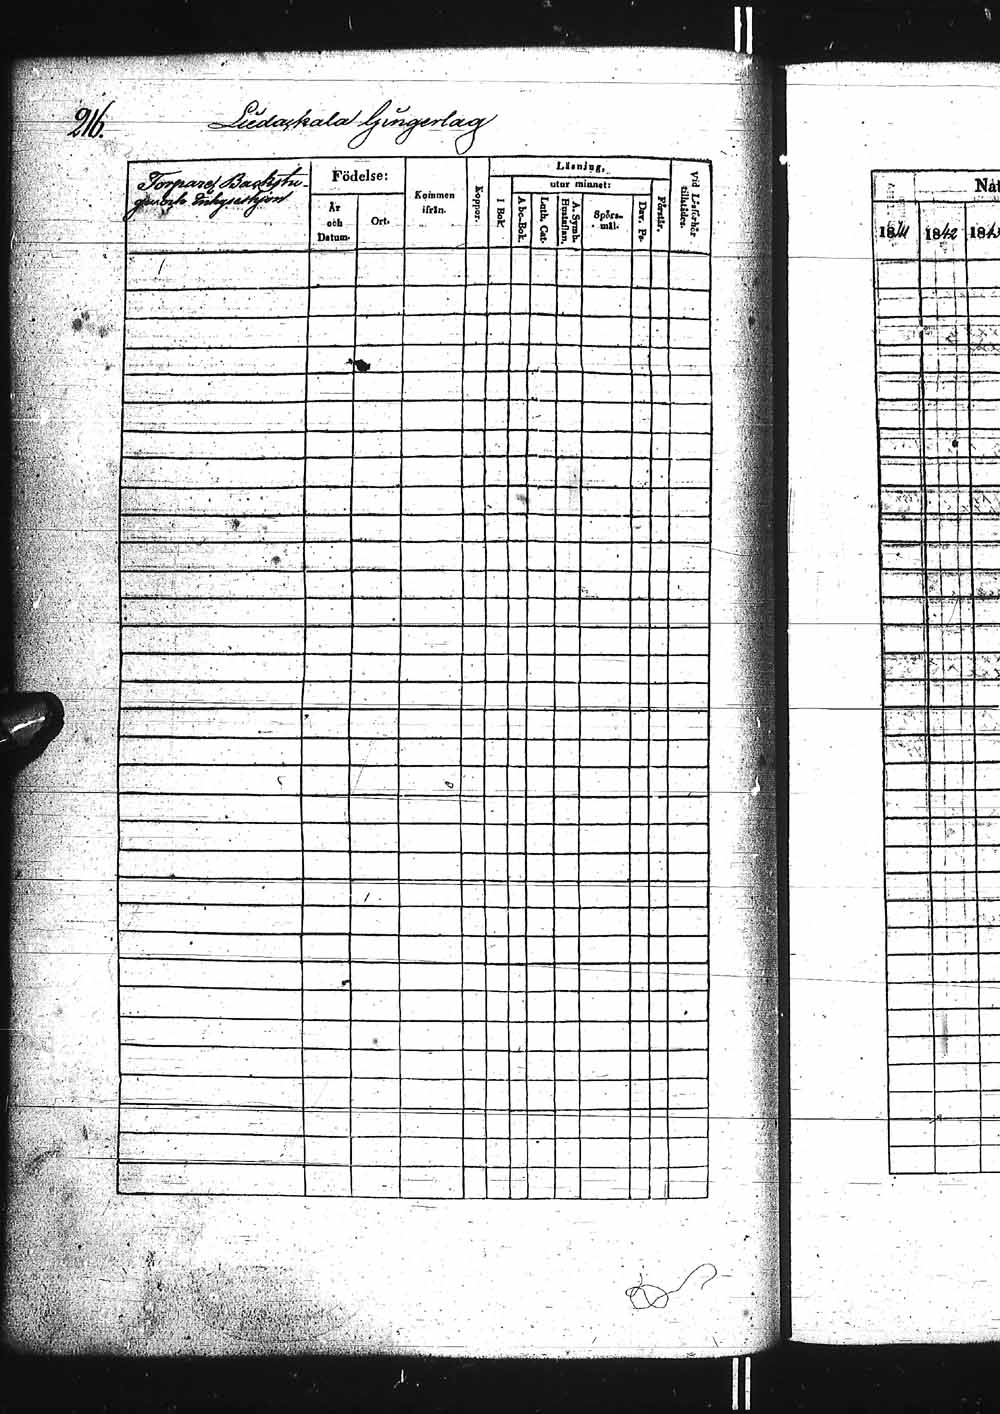 216.
Ludaskala Gjüngerlag
Torpare, Backstu-
gu och Inhyseshjon
Födelse:
År
och
Datum.
Ort.
Kommen
ifrån.
Koppor.
Läsning,
utur minnet:
I Bok
Abc-Bok.
Luth. Cat.
A. Symb.
Hustaflan.
Spörs-
mål.
Dav. Ps.
Förstår.
Vid Läsförhör
tillstädes.
Nat
1841
1842
184